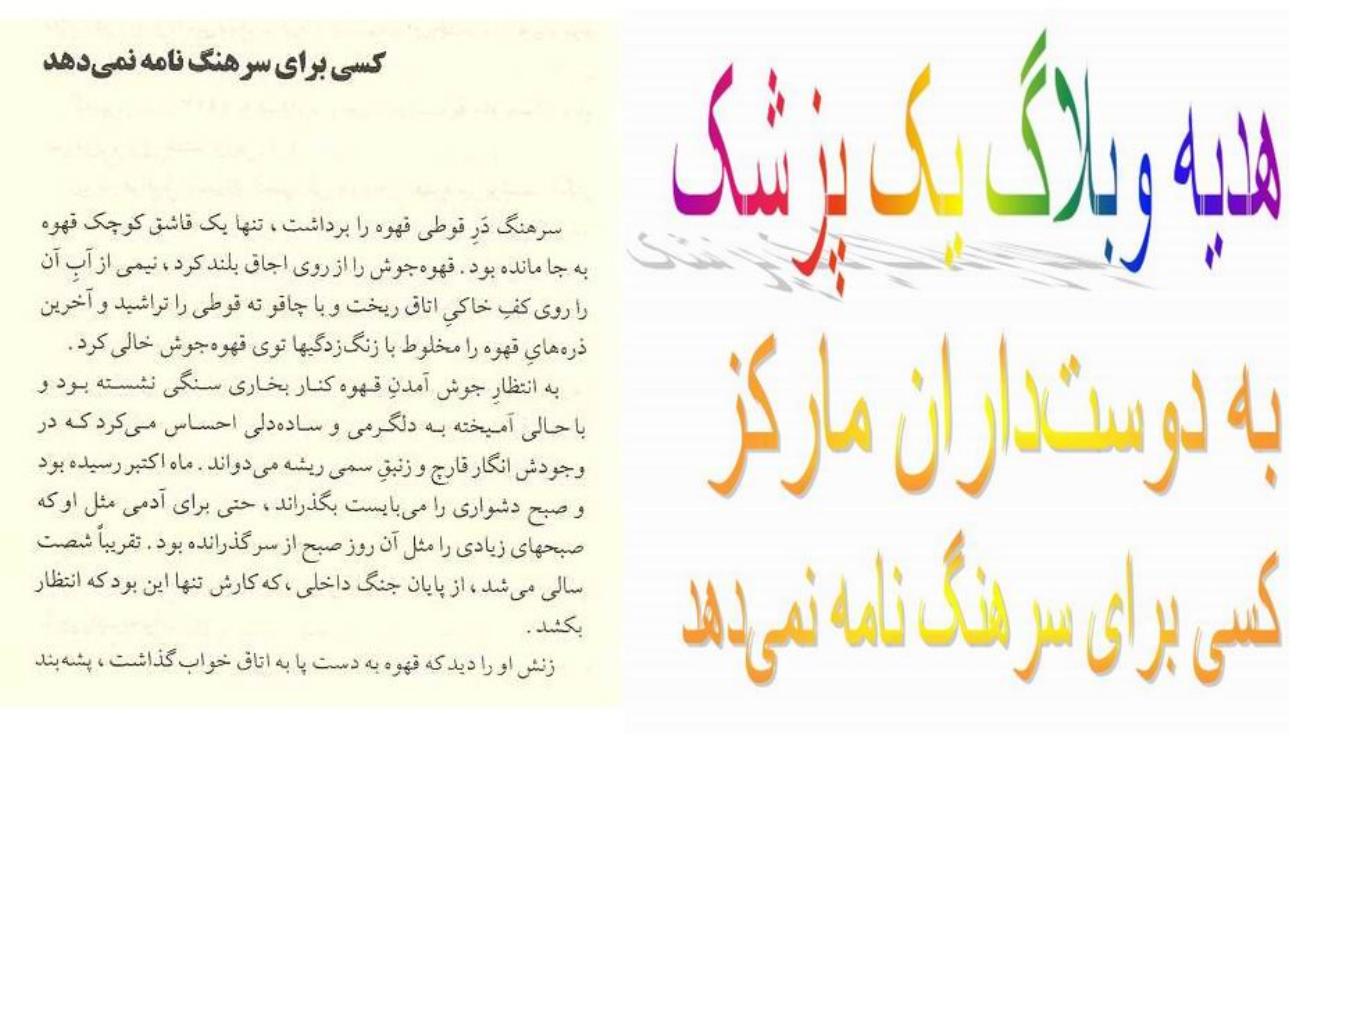 هدیه وبلاگ یک پزشک
به دوست‌داران مارکز
کسی برای سرهنگ نامه نمی‌دهد
کسی برای سرهنگ نامه نمی‌دهد
سرهنگ دَرِ قوطی قهوه را برداشت، تنها یک قاشق کوچک قهوه
به جا مانده بود. قهوه‌جوش را از روی اجاق بلند کرد، نیمی از آبِ آن
را روی کفِ خاکیِ اتاق ریخت و با چاقو ته قوطی را تراشید و آخرین
ذره‌هایِ قهوه را مخلوط با زنگ‌زدگیها توی قهوه‌جوش خالی کرد.
به انتظارِ جوش آمدنِ قهوه کنار بخاری سنگی نشسته بود و
با حالی آمیخته به دلگرمی و ساده‌دلی احساس می‌کرد که در
وجودش انگار قارچ و زنبقِ سمی ریشه می‌دواند. ماه اکتبر رسیده بود
و صبح دشواری را می‌بایست بگذراند، حتی برای آدمی مثل او که
صبحهای زیادی را مثل آن روز صبح از سر گذرانده بود. تقریباً شصت
سالی می‌شد، از پایان جنگ داخلی، که کارش تنها این بود که انتظار
بکشد.
زنش او را دید که قهوه به دست پا به اتاق خواب گذاشت، پشه‌بند